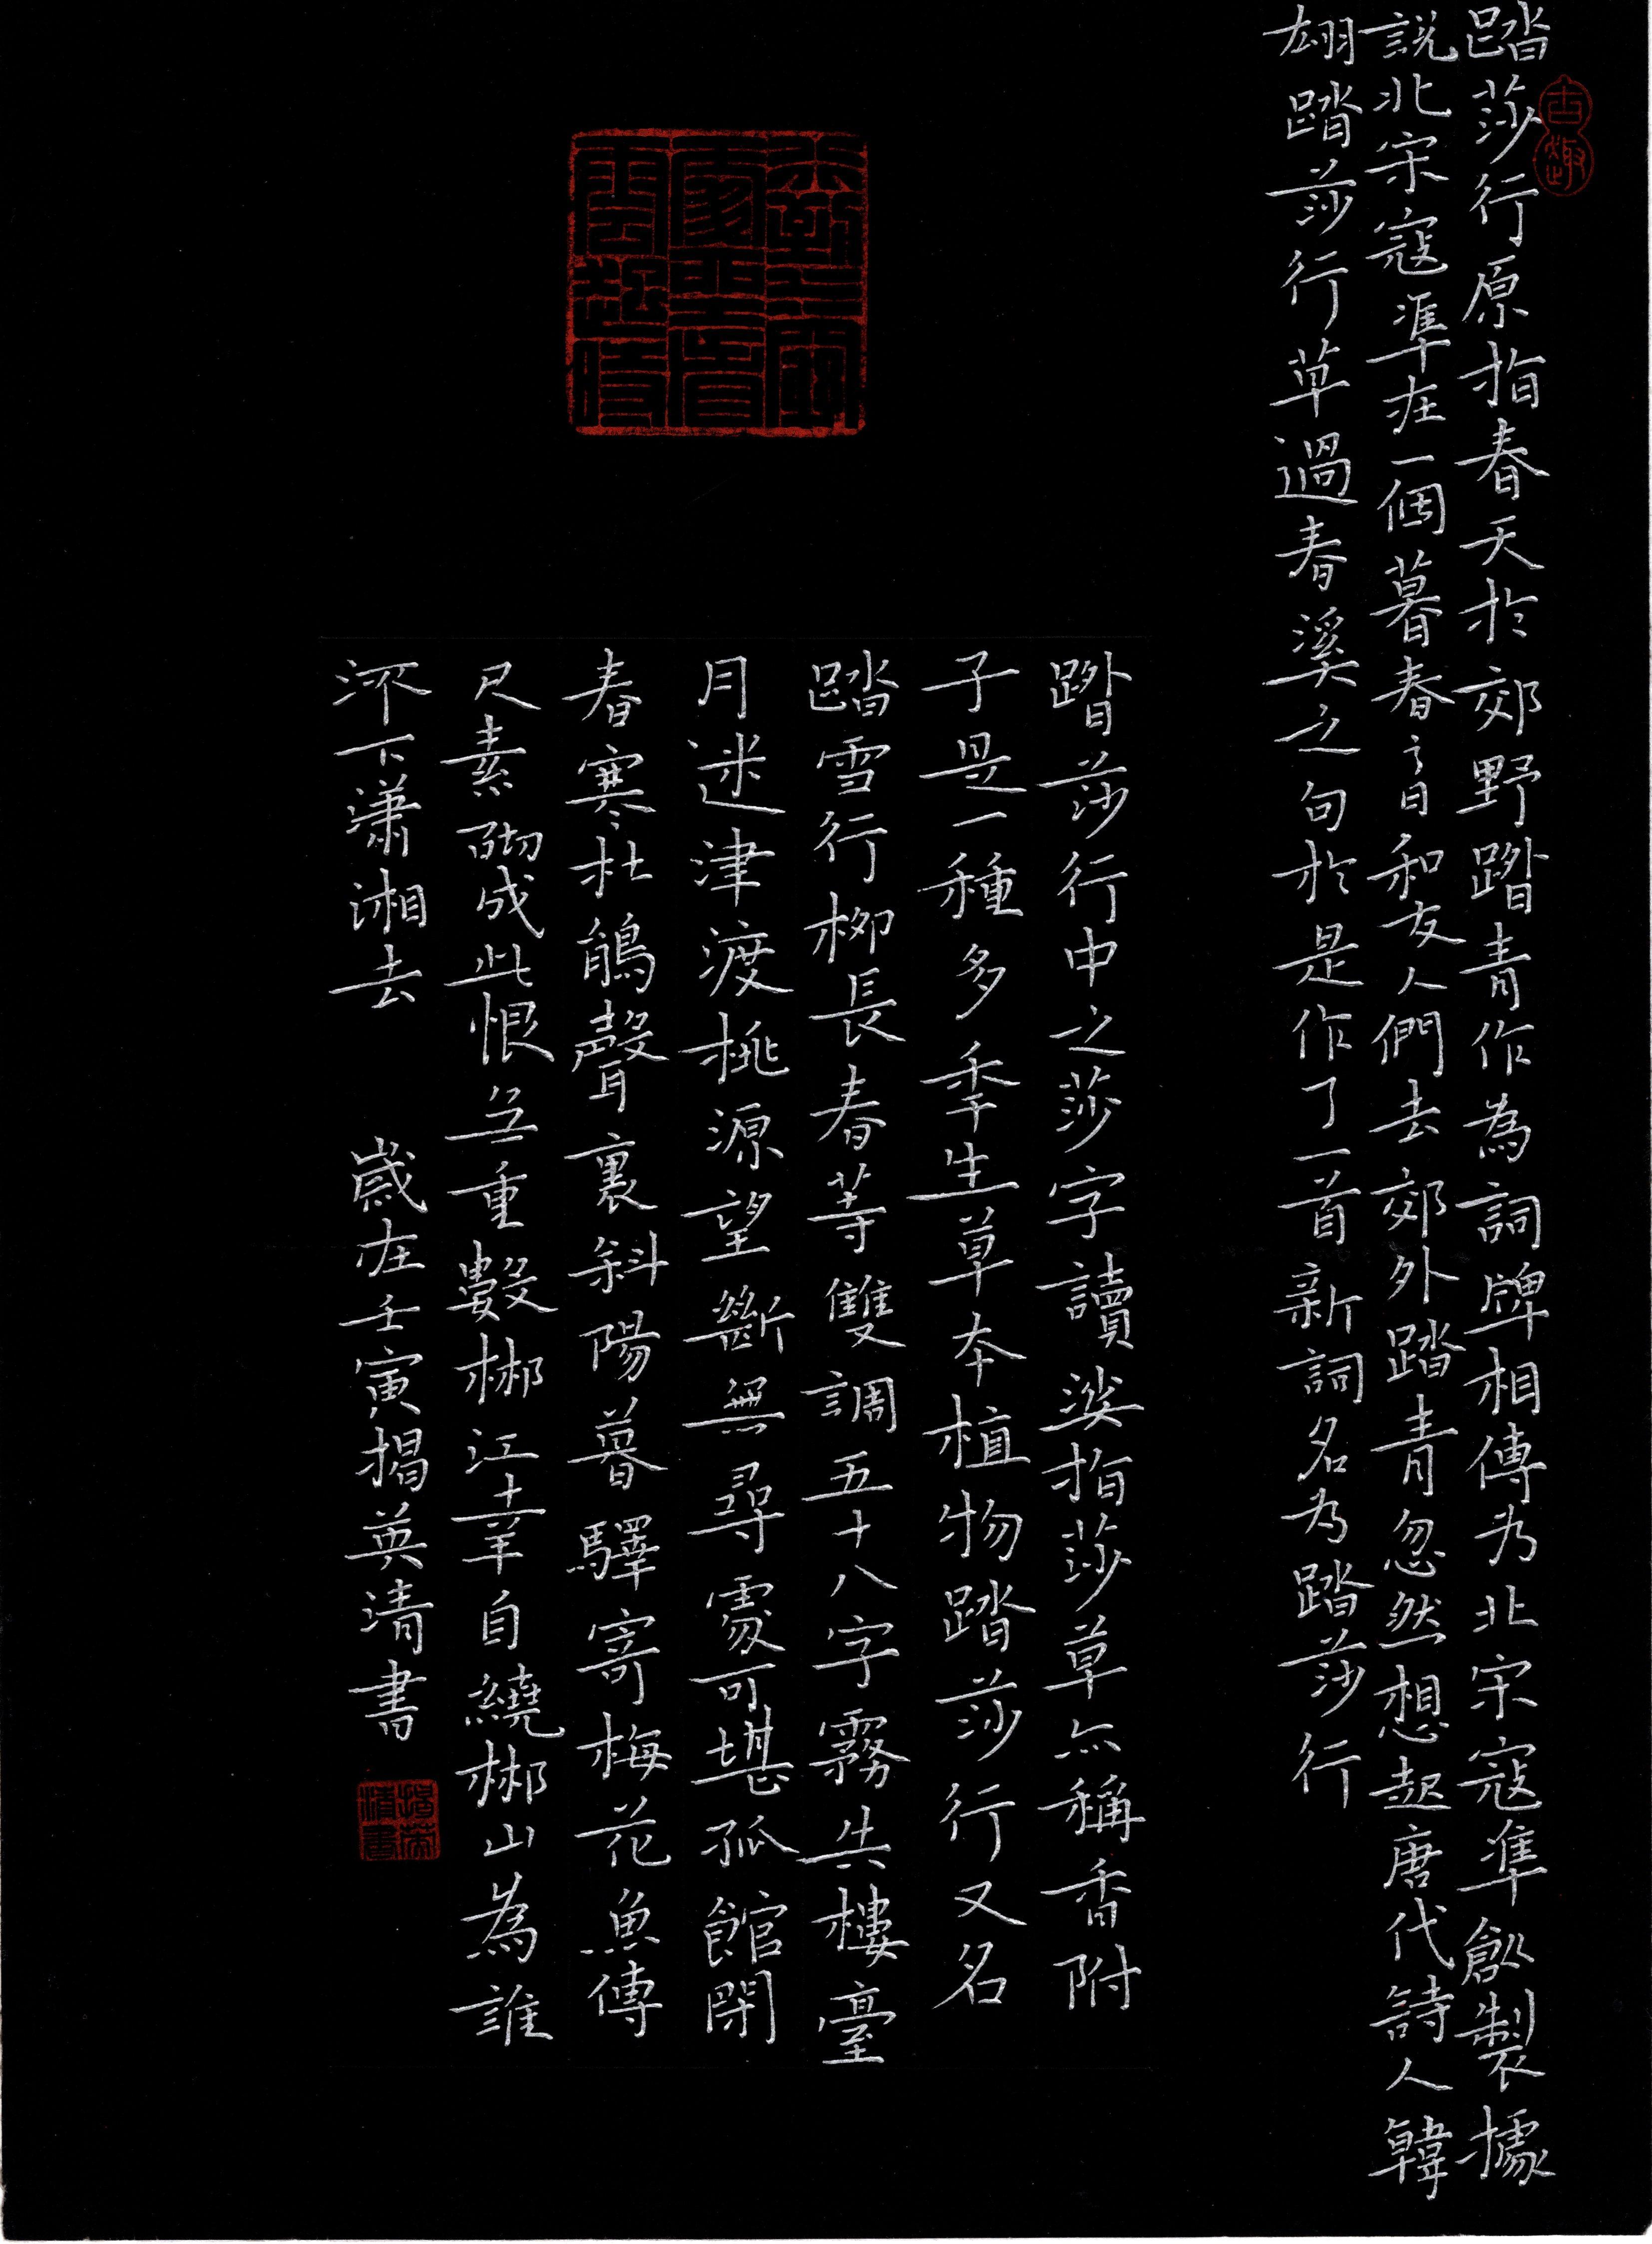 踏莎行原指春天於郊野踏青作為詞牌相傳为北宋寇準創製據
說北宋寇準在一個暮春之日和友人們去郊外踏青忽然想起唐代詩人韓
翃踏莎行草過春溪之句於是作了一首新詞名为踏莎行
踏莎行中之莎字讀娑指莎草亦稱香附
子是一種多季生草本植物踏莎行又名
踏雪行柳長春等雙調五十八字霧失樓臺
月迷津渡桃源望斷無尋處可堪孤館閉
春寒杜鵑聲裏斜陽暮驛寄梅花魚傳
尺素砌成此恨无重數郴江幸自繞郴山為誰
流下瀟湘去　歲在壬寅揭英清書
古趣
揭英清書